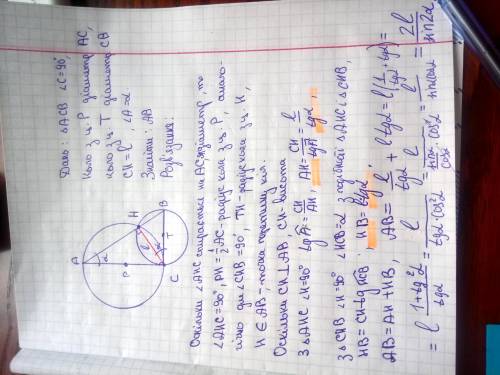 A
α
P
H
l
α
C
T
B
Дано: △ACB ∠C=90°
Коло з ц. P діаметр AC,
коло з ц. T діаметр CB
CH=l, ∠A=α
Знайти: AB
Розв'язання:
Оскільки ∠AHC спирається на AC діаметр, то
∠AHC=90°, PH=½AC-радіус кола з ц. P, анало-
гічно для ∠CHB=90°, TH-радіус кола з ц. H,
H∈AB-точка перетину кіл.
Оскільки CH⊥AB, CH-висота
З △AHC ∠H=90° tgA=CH/AH, AH=CH/tgA=l/tgα,
З △CHB ∠H=90° ∠HCB=α з подібності △AHC і △CHB,
HB=CH·tgHCB, HB=ltgα,
AB=AH+HB, AB=l/tgα+ltgα=l(1/tgα+tgα)=
=l (1+tg²α)/tgα=l/(tgα·cos²α)=l/(sinα/cosα·cos²α)=l/(sinαcosα)=2l/sin2α